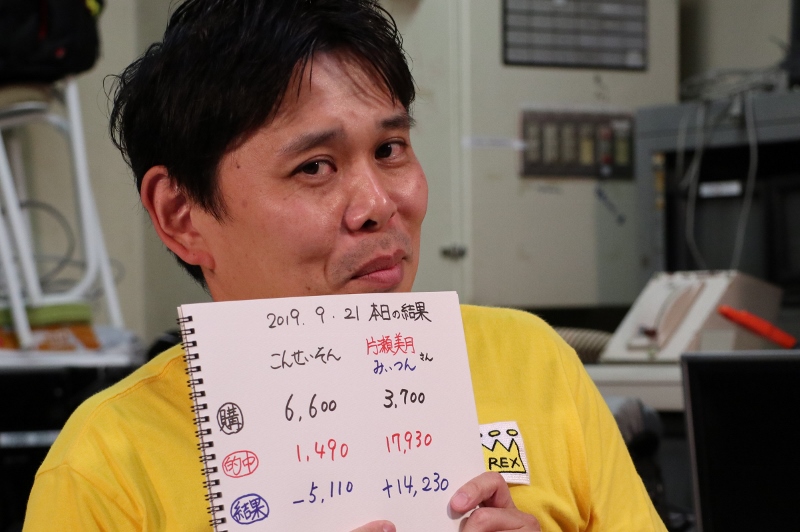 2019. 9. 21 本日の結果
こんせいそん 片瀬美月
みぃつんさん
購 6,600 3,700
的中 1,490 17,930
結果 -5,110 +14,230
REX